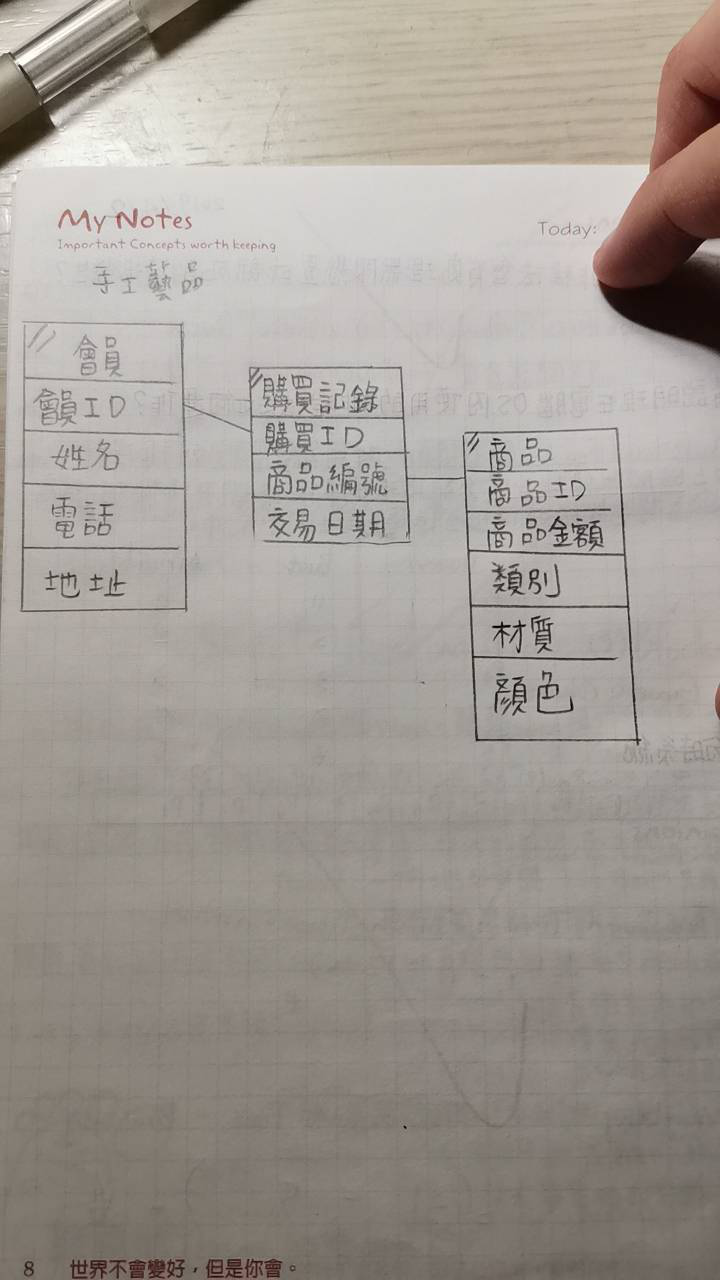 My Notes
Important Concepts worth keeping
Today:
手工藝品
會員
會員ID
姓名
電話
地址
購買記錄
購買ID
商品編號
交易日期
商品
商品ID
商品金額
類別
材質
顏色
8 世界不會變好，但是你會。